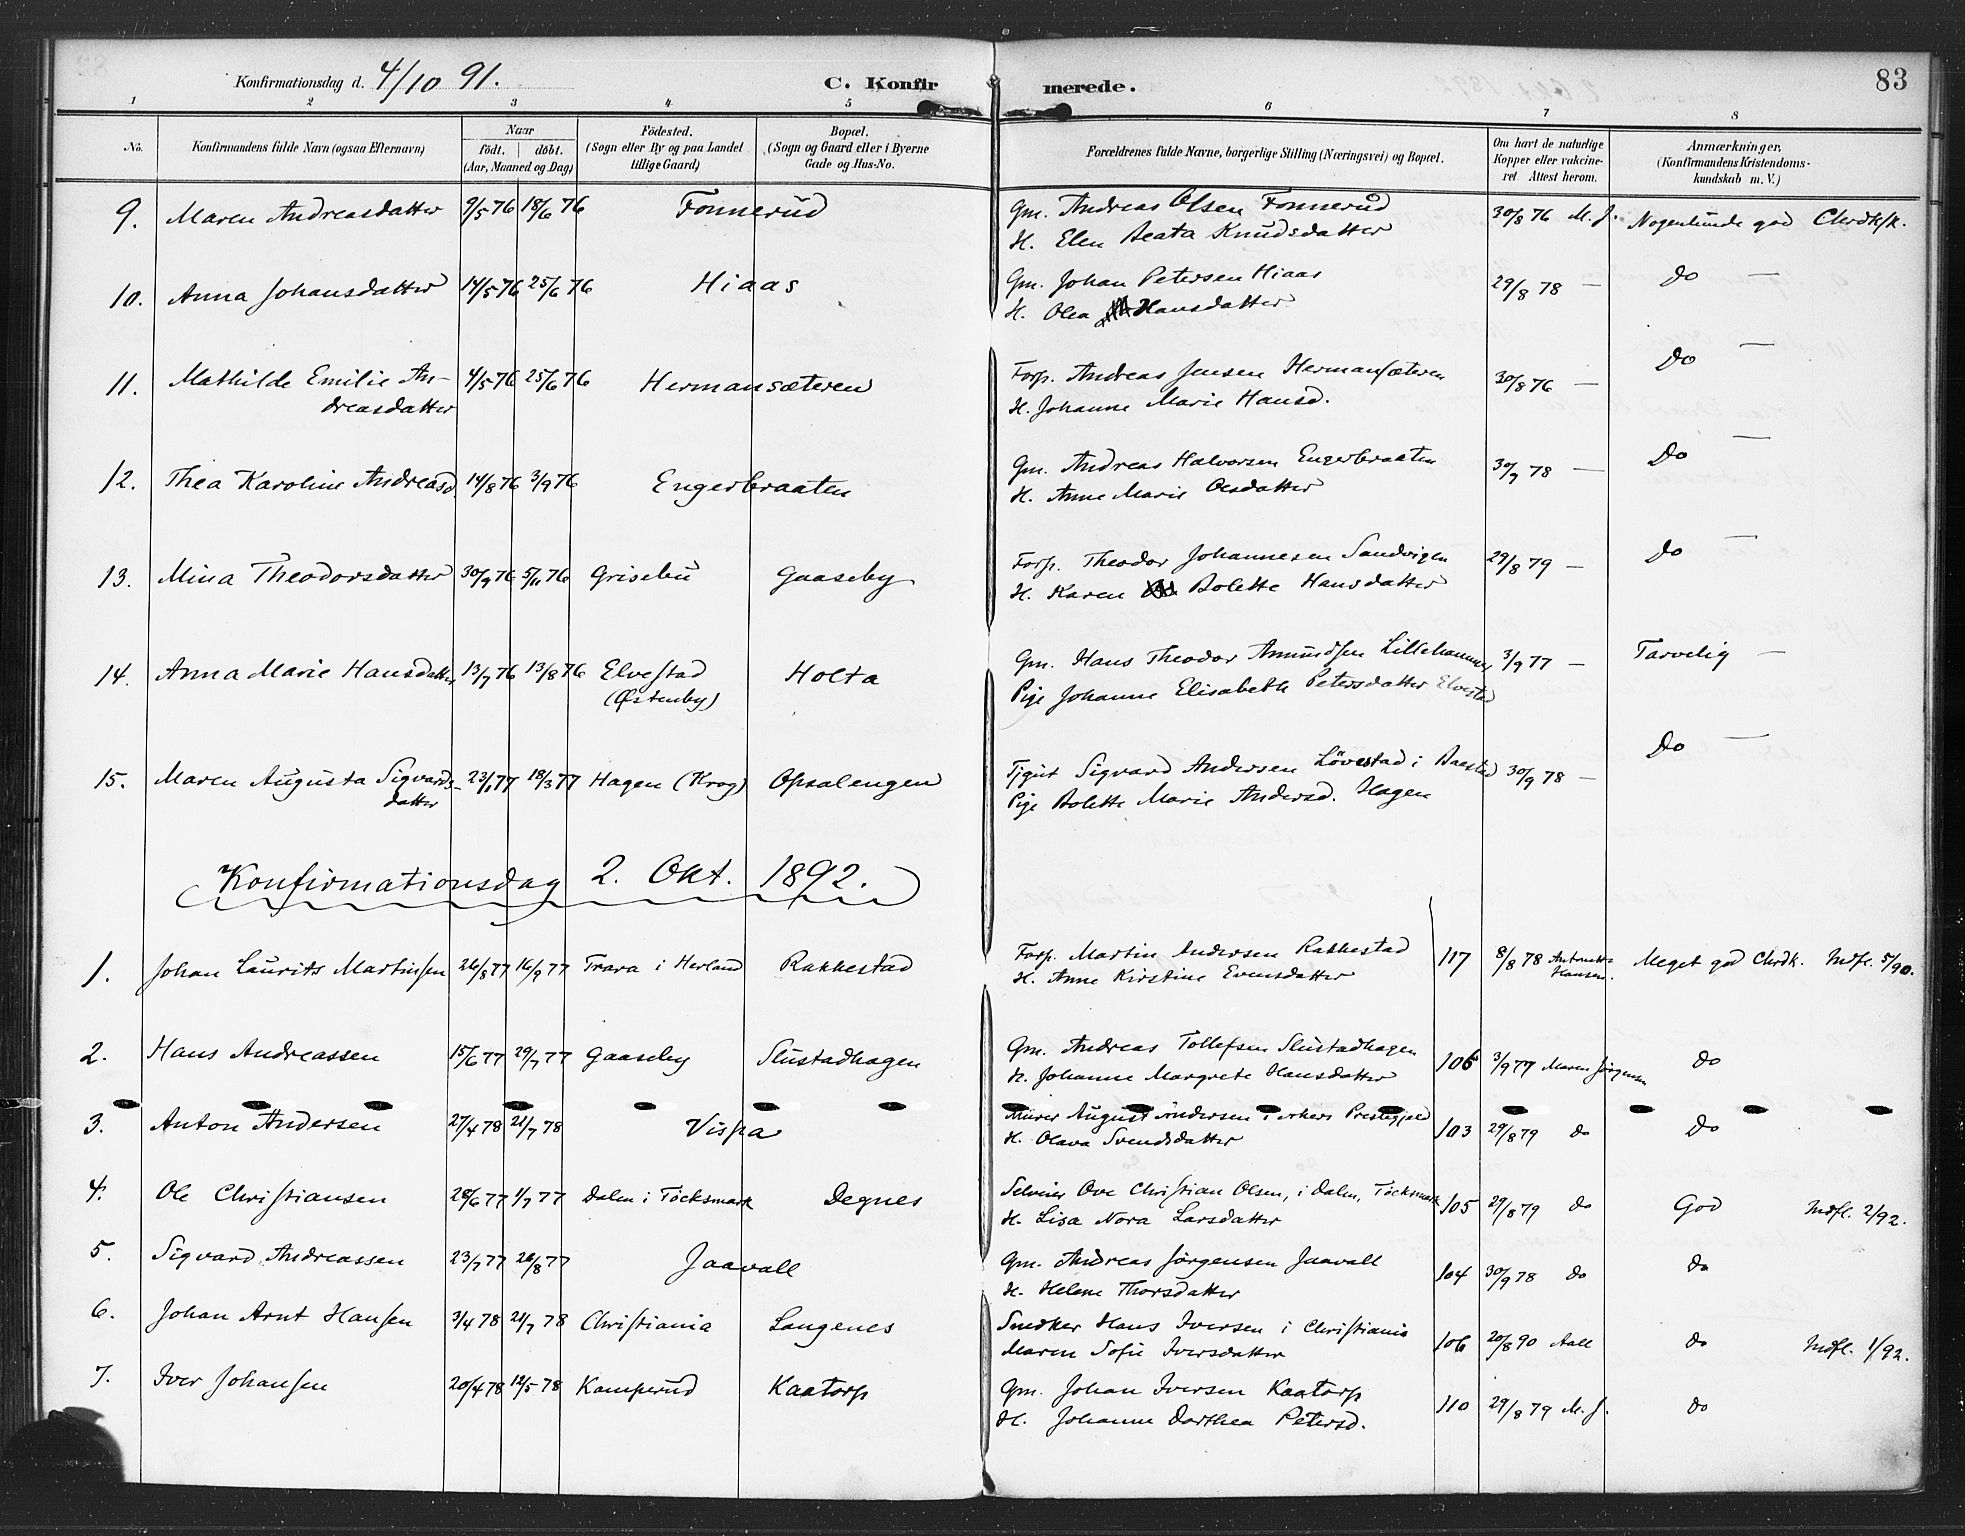 Konfirmationsdag d. 4/10 91. C. Konfirmerede. 83
1 2 3 4 5 6 7 8
No. Konfirmandens fulde Navn (ogsaa Efternavn) Naar födt. döbt. (Aar, Maaned og Dag) Födested. (Sogn eller By og paa Landet tillige Gaard) Bopæl. (Sogn og Gaard eller i Byerne Gade og Hus-No. Forældrenes fulde Navne, borgerlige Stilling (Næringsvei) og Bopæl. Om havt de naturlige Kopper eller vakcineret. Attest herom. Anmærkninger. (Konfirmandens Kristendomskundskab m. V.)
9. Maren Andreasdatter 9/5 76 18/6 76 Fonnerud Gm. Andreas Olsen Fonnerud 30/8 76 M. J. Nogenlunde god Chrdk/k.
H. Elen Beata Knudsdatter
10. Anna Johansdatter 14/5 76 25/6 76 Hiaas Gm. Johan Petersen Hiaas 29/8 78 — Do —
H. Olea Hansdatter
11. Mathilde Emilie An- 4/5 76 25/6 76 Hermansæteren Forp. Andreas Jensen Hermansæteren 30/8 76 — Do —
dreasdatter H. Johanne Marie Hansd.
12. Thea Karoline Andreasd 14/8 76 3/9 76 Engerbraaten Gm. Andreas Halvorsen Engerbraaten 30/9 78 — Do —
H. Anne Marie Olsdatter
13. Mina Theodorsdatter 30/9 76 5/11 76 Grisebu Gaaseby Forp. Theodor Johannesen Sandvigen 29/8 79 — Do —
H. Karen Bolette Hansdatter
14. Anna Marie Hansdatter 13/7 76 13/8 76 Elvestad Holta Gm. Hans Theodor Amundsen Lillehammer 3/9 77 — Tarvelig —
(Østenby) Pige Johanne Elisabeth Petersdatter Elvestad
15. Maren Augusta Sigvards- 23/1 77 18/3 77 Hagen (Krog) Opsalengen Tjgut Sigvard Andersen Lövestad i Baastad 30/9 78 — Do —
datter Pige Bolette Marie Andersd. Hagen
Konfirmationsdag 2. Okt. 1892.
1. Johan Laurits Martinsen 26/8 77 16/9 77 Trara i Herland Rakkestad Forp. Martin Andersen Rakkestad 117 8/8 78 Hansen. Meget god Chrdk. Indfl. 5/90.
H. Anne Kirstine Evensdatter
2. Hans Andreassen 15/6 77 29/7 77 Gaaseby Slustadhagen Gm. Andreas Tollefsen Slustadhagen 106 3/9 77 Maren Jørgensen Do
H. Johanne Margrete Hansdatter
3. Anton Andersen 27/4 78 21/7 78 Vispa Murer August Andersen i Prestegjeld 103 29/8 79 do Do
H. Olava Svendsdatter
4. Ole Christiansen 28/6 77 1/7 77 Dalen i Töcksmark Degnes Selveier Ove Christian Olsen, i Dalen, Töcksmark 105 29/8 79 do God Indfl. 2/92.
H. Lisa Nora Larsdatter
5. Sigvard Andreassen 23/7 77 26/8 77 Jaavall Gm. Andreas Jørgensen Jaavall 104 30/9 78 do do
H. Helene Thorsdatter
6. Johan Arnt Hansen 3/4 78 21/7 78 Christiania Langenes Snedker Hans Iversen i Christiania 106 20/8 90 Aall do Indfl. 1/92.
Maren Sofie Iversdatter
7. Iver Johansen 20/4 78 12/5 78 Kamperud Kaatorp Gm. Johan Iversen Kaatorp 110 29/8 79 M. J. do
H. Johanne Dorthea Petersd.